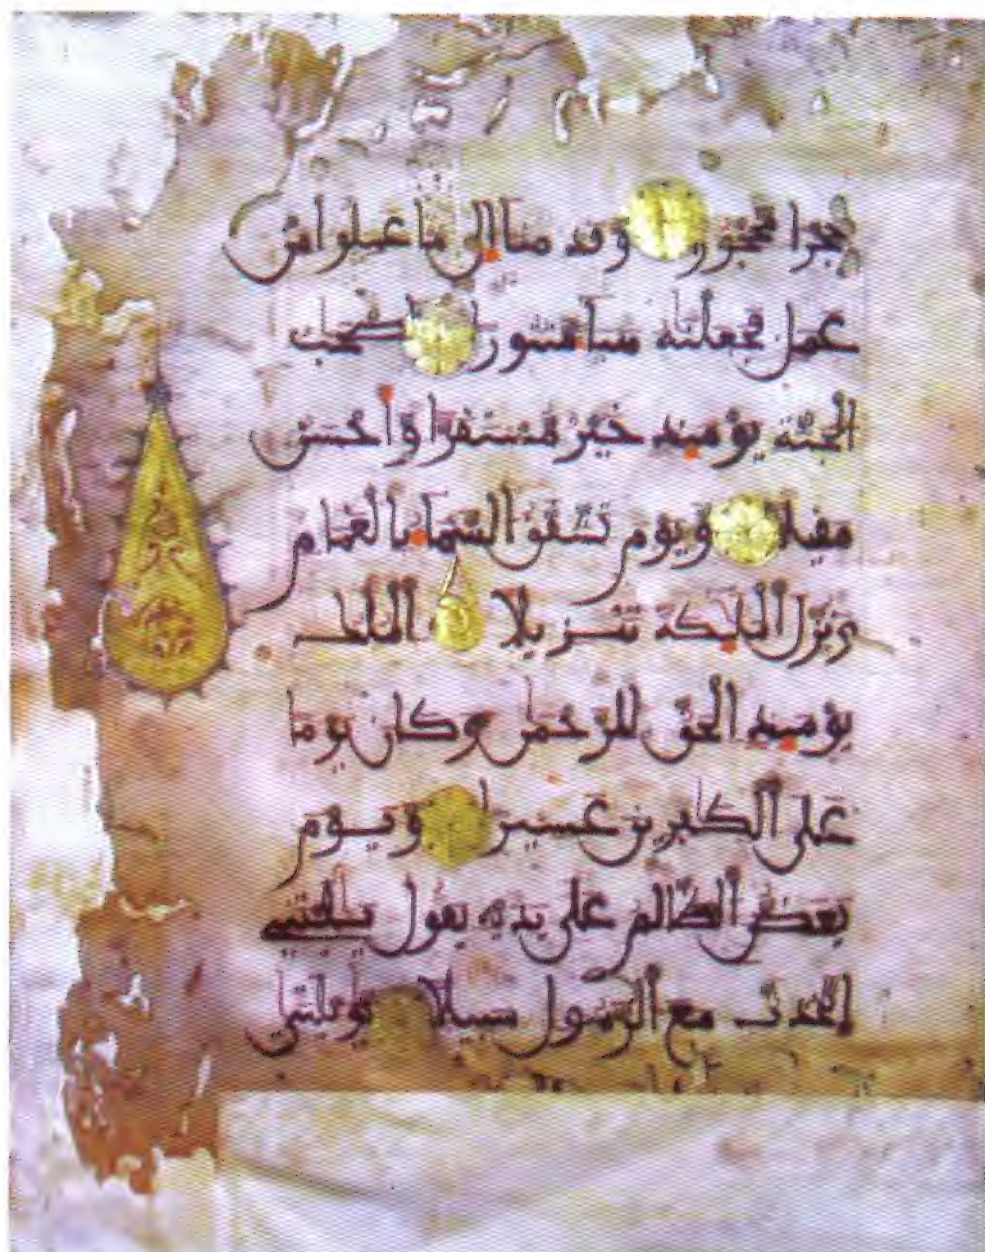 حجرا محجورا وقدمنا إلى ما عملوا من
عمل فجعلنه هبا منثورا أصحب
الجنة يومئذ خير مستقرا وأحسن
مقيلا ويوم تشقق السماء بالغمام
ونزل الملئكة تنزيلا الملك
يومئذ الحق للرحمن وكان يوما
على الكفرين عسيرا ويوم
يعض الظالم على يديه يقول يليتني
اتخذت مع الرسول سبيلا يويلتى